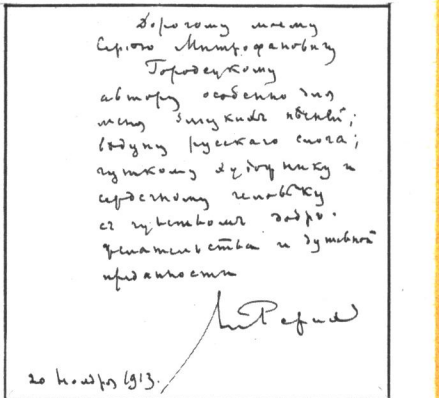 Дорогому моему
Сергею Митрофановичу
Городецкому
автору особенно для
меня звуких пѣсней;
ведуну русскаго слога;
чуткому художнику и
сердечному человѣку
съ чувствомъ добро-
желательства и душевной
преданности
20 Ноября 1913.